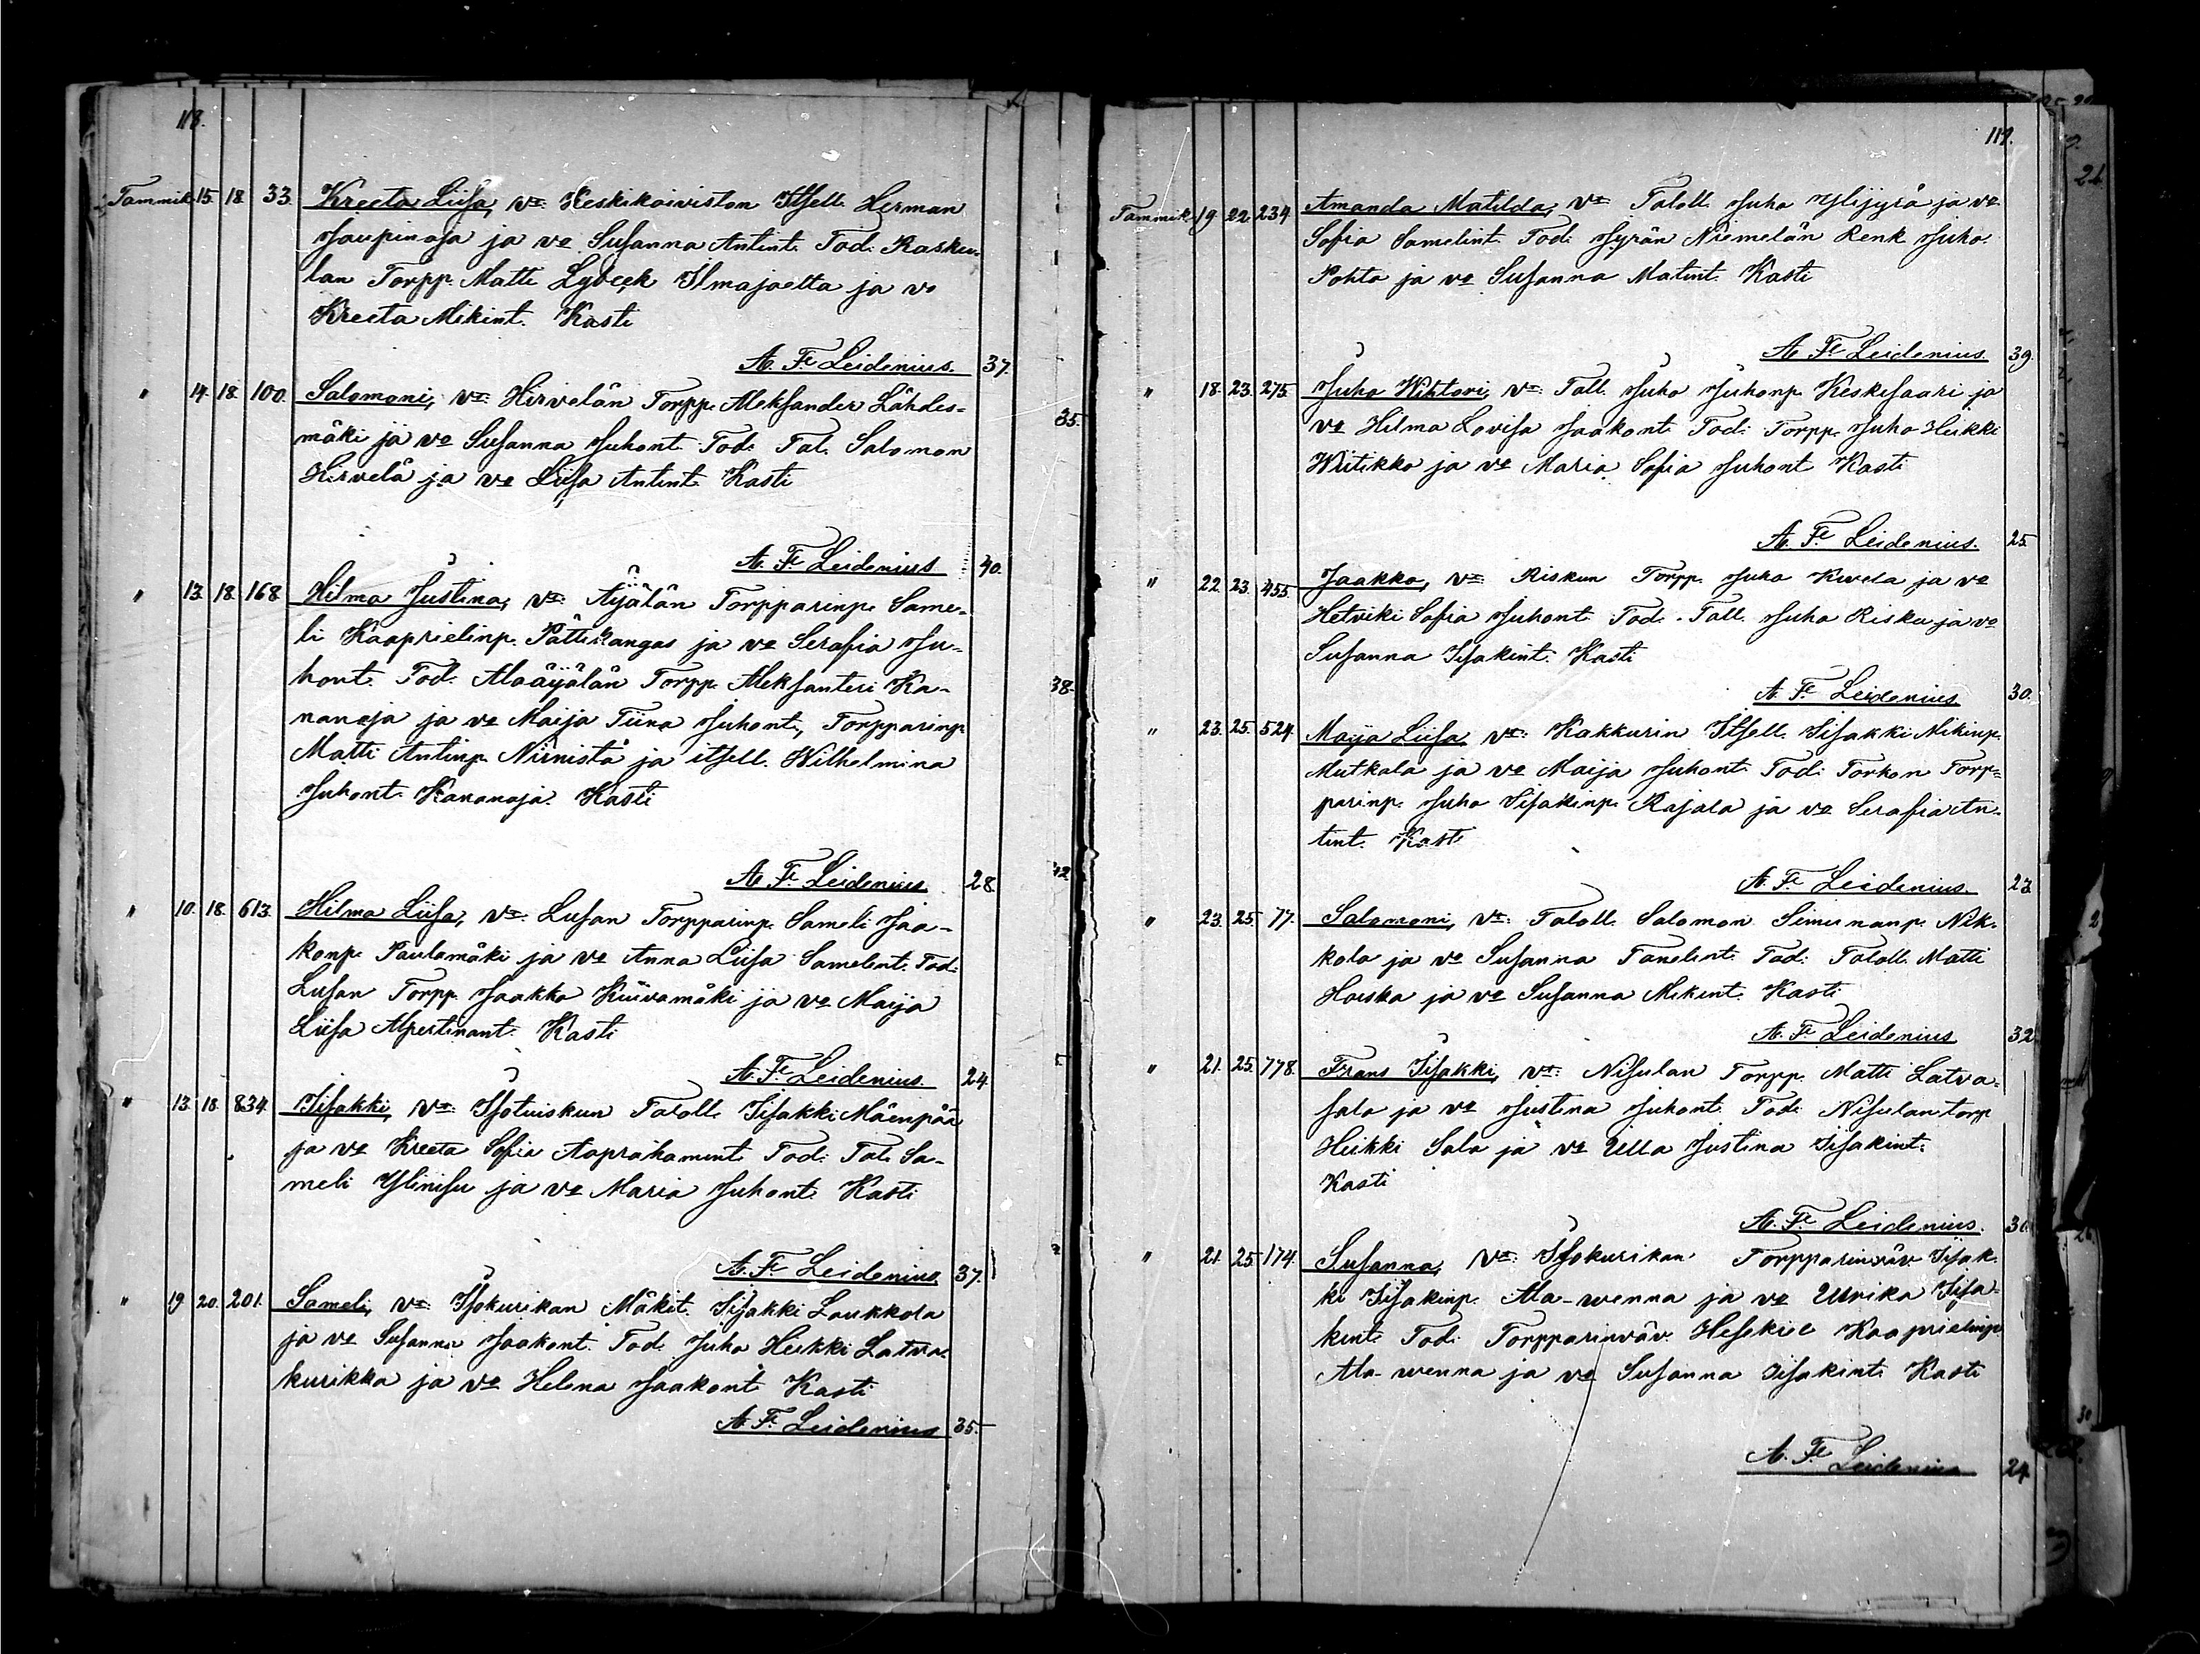 118.
Tammik. 15. 18. 33. Kreeta Liisa, va: Keskikoiviston Itsell. Herman
Jaupinoja ja vo Susanna Antint. Tod. Rasku-
lan Torpp. Matti Lybeck Ilmajoelta ja vo
Kreeta Mikint. Kasti
A. Fr. Leidenius. 37.
" 14. 18. 100. Salomoni, va: Hirvelän Torpp. Aleksander Lähdes=
mäki ja vo Susanna Juhont. Tod. Tal. Salomon
Hirvelä ja vo Liisa Antint. Kasti
A. Fr. Leidenius 40.
" 13. 18. 168. Hilma Justina, va: Äijälän Torpparinp. Same-
li Kaaprielinp. Pättikangas ja vo Serafia Ju-
hont. Tod. Alaäijälän Torpp. Aleksanteri Ka-
nanoja ja vo Maija Tiina Juhont., Torpparinp.
Matti Antinp. Niinistö ja itsell. Wilhelmina
Juhont. Kananoja. Kasti
A. Fr. Leidenius 28.
" 10. 18. 613. Hilma Liisa, va: Lusan Torpparinp. Sameli Jaa-
konp. Paulamäki ja vo Anna Liisa Samelint. Tod:
Lusan Torpp. Jaakko Kuivamäki ja vo Maija
Liisa Alpertinant. Kasti
A. Fr. Leidenius 24.
" 13. 18. 834. Iisakki, va: Isotuiskun Taloll. Iisakki Mäenpää
ja vo Kreeta Sofia Aaprahamint. Tod: Tal. Sa-
meli Ylinisu ja vo Maria Juhont. Kasti
A. Fr. Leidenius 37.
" 19. 20. 201. Sameli, va: Isokurikan Mäkit. Iisakki Laukkola
ja vo Susanna Jaakont. Tod. Juho Heikki Latva-
kurikka ja vo Helena Jaakont. Kasti
A. Fr. Leidenius 35.
119.
Tammik. 19. 22. 234. Amanda Matilda, va Taloll. Juho Ylijyrä ja vo
Sofia Samelint. Tod. Jyrän Niemelän Renk Juho
Pohto ja vo Susanna Matint. Kasti
A. Fr. Leidenius. 39.
" 18. 23. 275. Juho Wihtori, va: Tall. Juho Juhonp. Keskisaari ja
vo Hilma Lovisa Jaakont. Tod: Torpp. Juho Heikki
Wiitikko ja vo Maria Sofia Juhont. Kasti
A. Fr. Leidenius. 25.
" 22. 23. 455. Jaakko, va: Riskun Torpp. Juho Kivela ja vo
Hetviki Sofia Juhont. Tod. Tall. Juho Risku ja vo
Susanna Iisakint. Kasti
A. Fr. Leidenius. 30.
" 23. 25. 524. Maija Liisa va: Kakkurin Itsell. Iisakki Mikinp.
Mutkala ja vo Maija Juhont. Tod: Torkon Torp=
parinp. Juho Iisakinp. Rajala ja vo Serafia An-
tint. Kasti
A. Fr. Leidenius. 23.
" 23. 25. 77. Salomoni, va: Taloll. Salomon Simunanp. Nik-
kola ja vo Susanna Tanelint. Tod: Taloll. Matti
Hoiska ja vo Susanna Mikint. Kasti
A. Fr. Leidenius 32.
" 21. 25. 778. Frans Iisakki, va: Nisulan Torpp. Matti Latva-
sala ja vo Justina Juhont. Tod: Nisulan torp
Heikki Sala ja vo Ulla Justina Iisakint.
Kasti
A. Fr. Leidenius.
" 21. 25. 174. Susanna, va: Isokurikan Torpparinväv. Iisak-
ki Iisakinp. Ala-wenna ja vo Ulrika Iisa-
kint. Tod: Torpparinväv. Hesekiel Kaaprielinp
Ala-wenna ja vo Susanna Iisakint. Kasti
A. Fr. Leidenius 24.